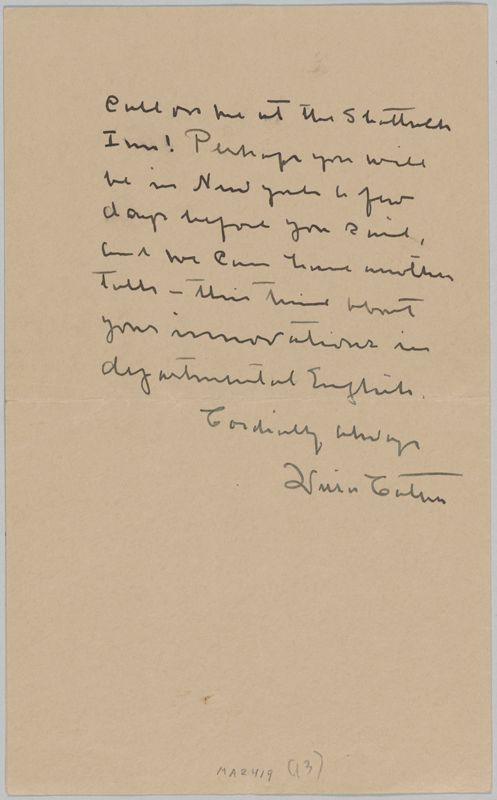 Call on me at the Shattuck
Inn! Perhaps you will
be in New York a few
days before you sail,
and we can have another
talk – this time about
your innovations in
departmental English.
Cordially always
Willa Cather
MA2419 (13)